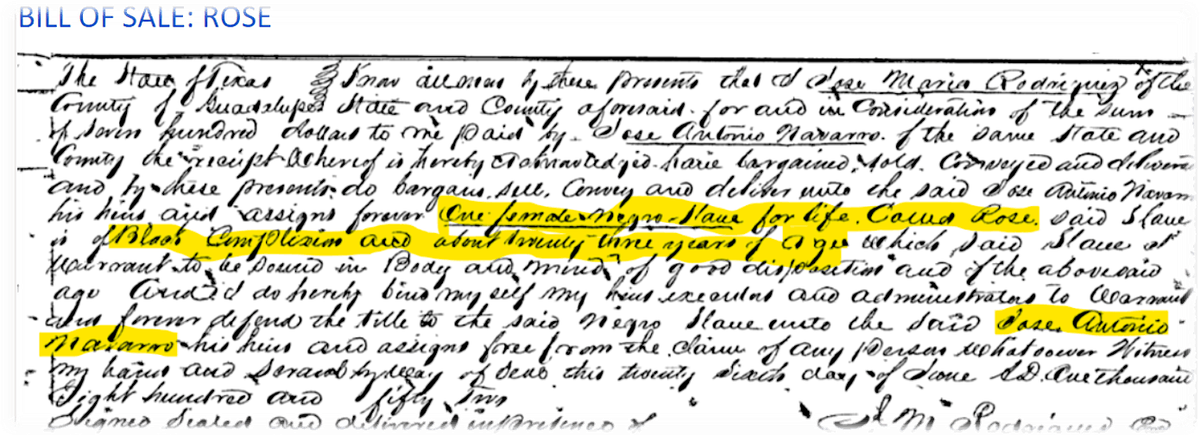 BILL OF SALE: ROSE
The State of Texas Know all men by these presents that I Jose Maria Rodriguez of the
County of Guadalupe State and County aforesaid for and in Consideration of the sum
of Seven hundred dollars to me paid by Jose Antonio Navarro of the same State and
County the receipt whereof is hereby acknowledged have bargained, sold, Conveyed and
and by these presents do bargain, sell, Convey and deliver unto the said Jose Antonio Navarro
his heirs and assigns forever One female negro slave for life, Called Rose. said Slave
is of Black Complexion and about twenty three years of age which said Slave I
Warrant to be Sound in Body and mind of good disposition and of the abovesaid
age And I do hereby bind my self my heirs executors and administrators to Warrant
and forever defend the title to the said Negro Slave unto the said Jose Antonio
Navarro his heirs and assigns free from the Claim of any Person whatsoever Witness
my hand and Scrawl by way of Seal this twenty Sixth day of June A.D. One thousand
Eight hundred and fifty two
Signed Sealed and delivered in presence of J M Rodriguez